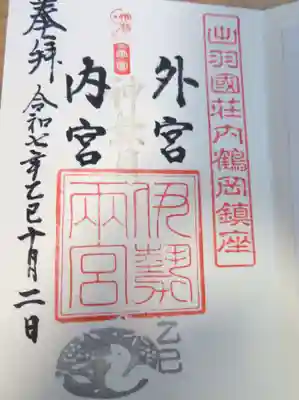 出羽國荘内鶴岡鎮座
外宮
内宮
伊勢
兩宮
乙巳
奉拝 令和七年乙巳十月二日